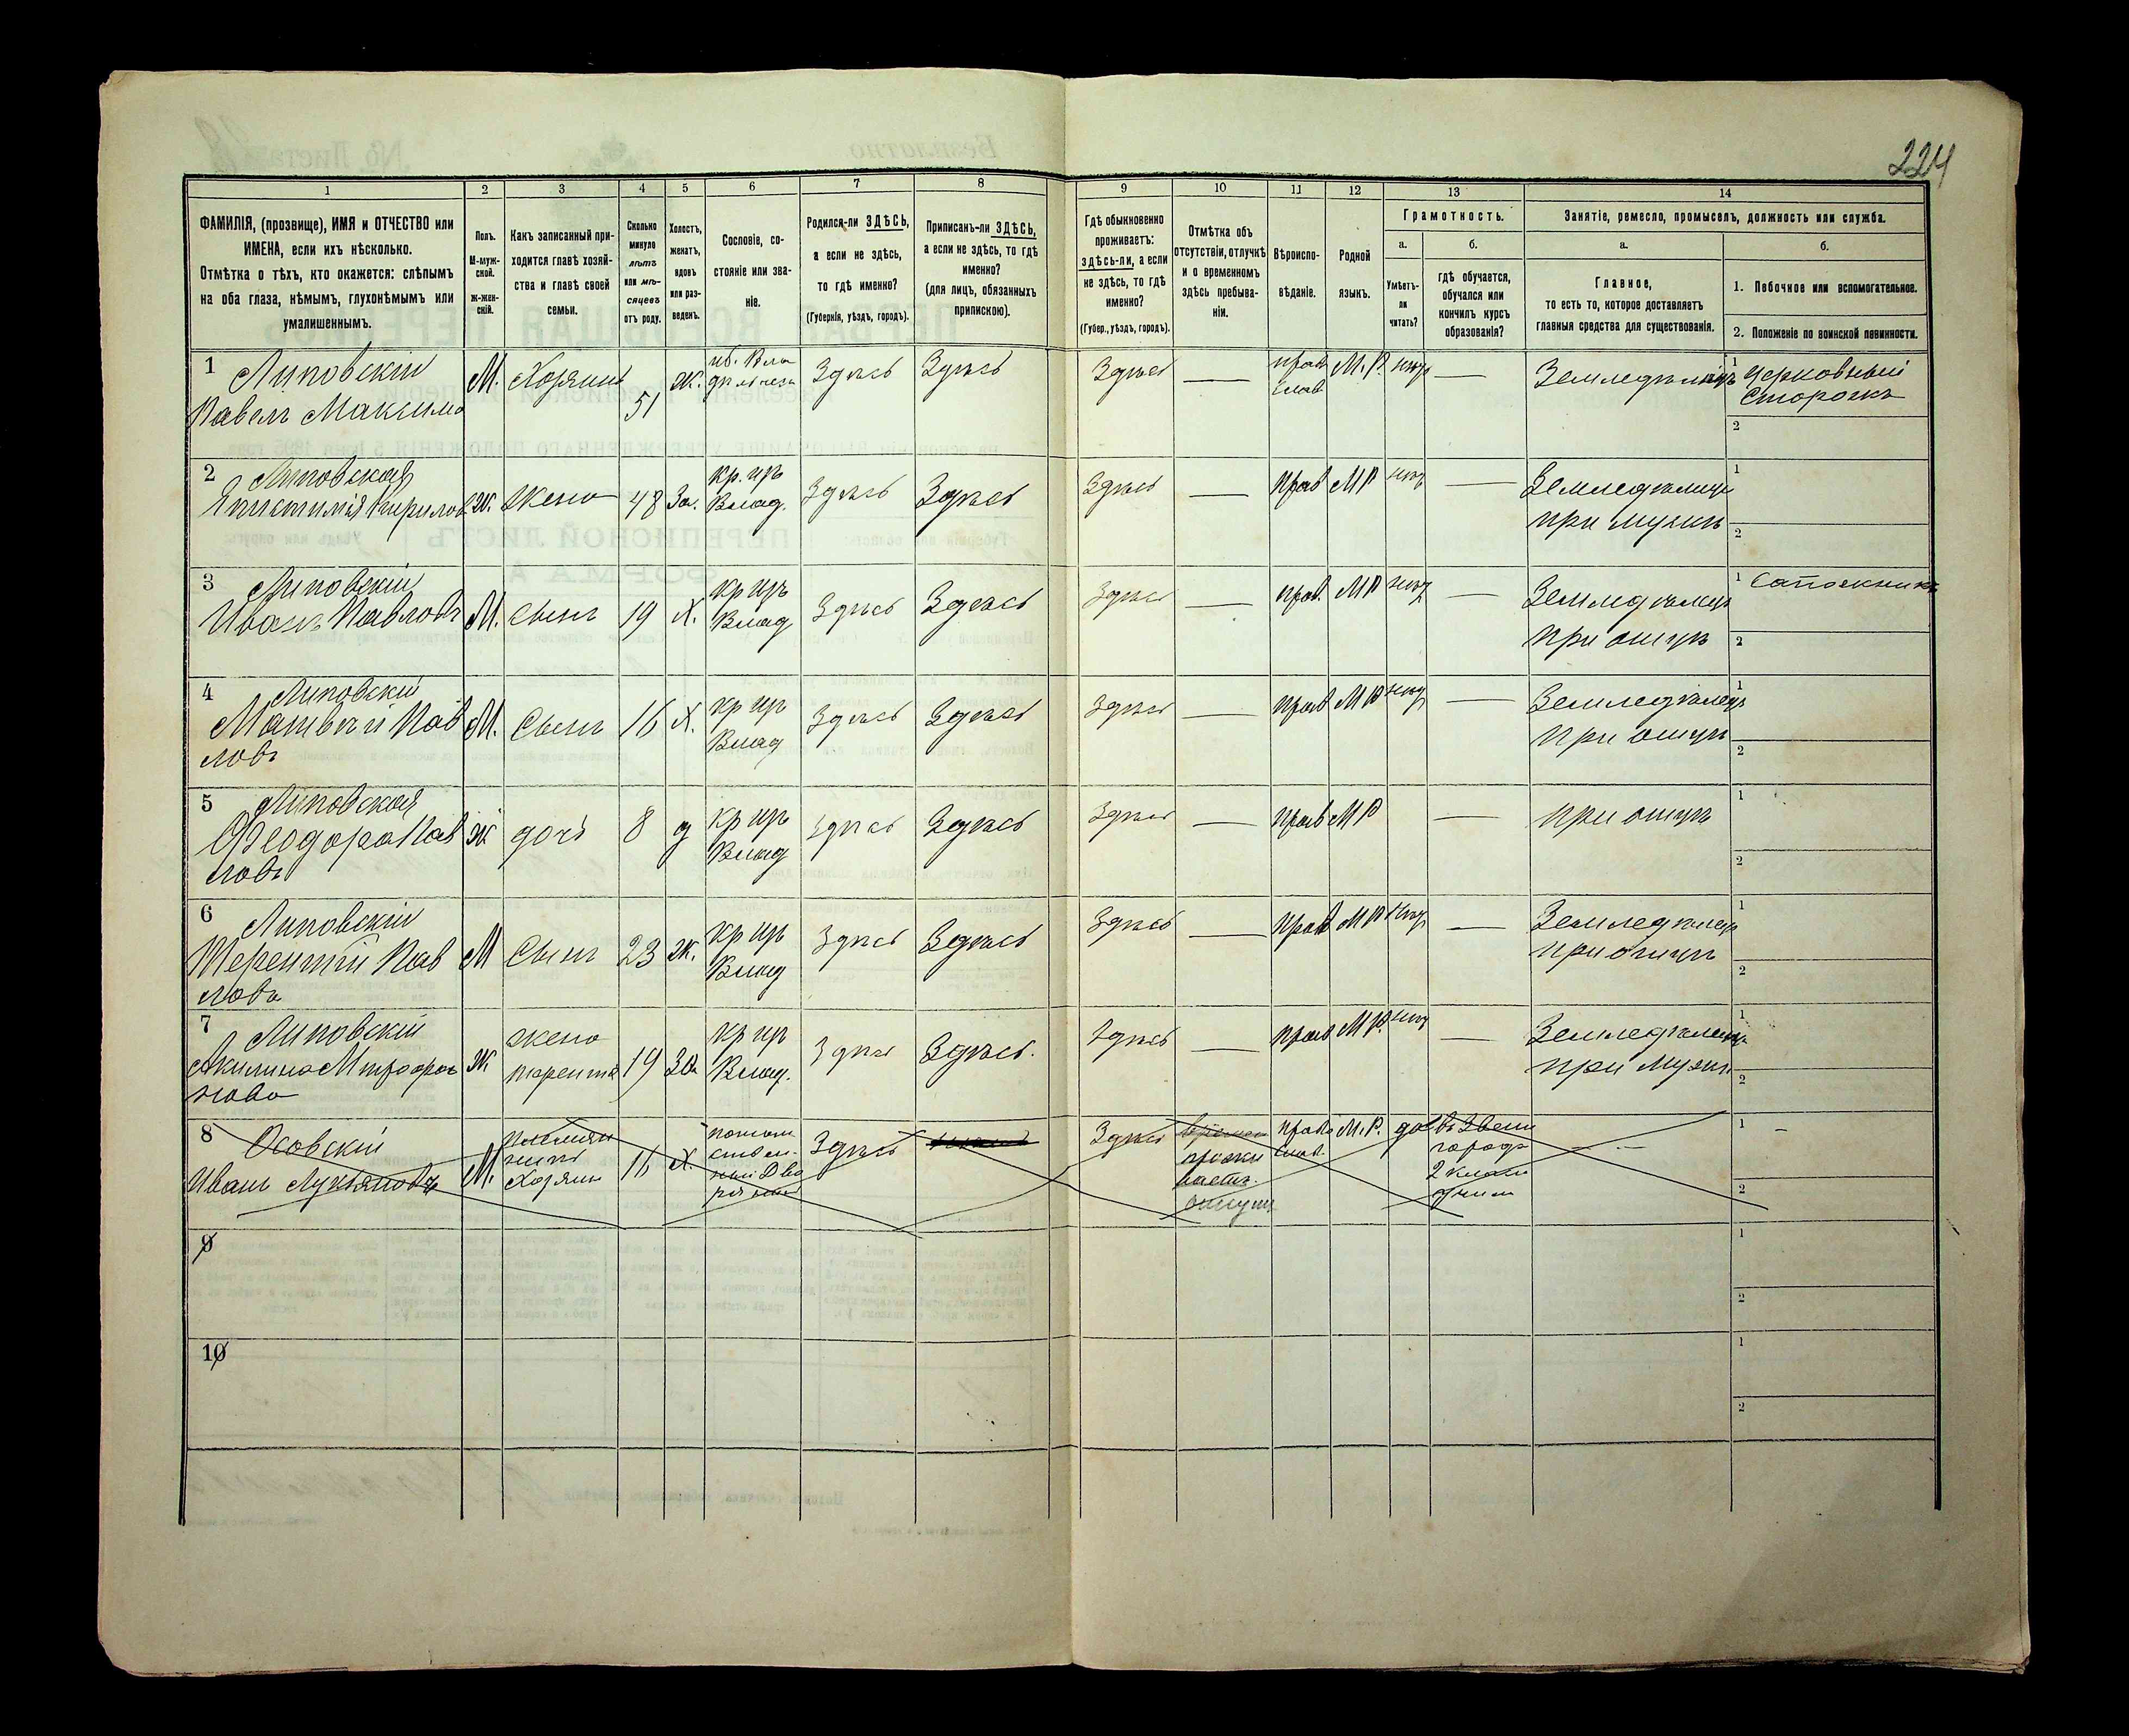 224
1 2 3 4 5 6 7 8 9 10 11 12 13 14
ФАМИЛІЯ, (прозвище), ИМЯ и ОТЧЕСТВО или
ИМЕНА, если ихъ нѣсколько.
Отмѣтка о тѣхъ, кто окажется: слѣпымъ
на оба глаза, нѣмымъ, глухонѣмымъ или
умалишеннымъ.
Полъ.
М-муж-
ской.
ж-жен-
скій.
Какъ записанный при-
ходится главѣ хозяй-
ства и главѣ своей
семьи.
Сколько
минуло
лѣтъ
или мѣ-
сяцевъ
отъ роду.
Холостъ,
женатъ,
вдовъ
или раз-
веденъ.
Сословіе, со-
стояніе или зва-
ніе.
Родился-ли ЗДѢСЬ,
а если не здѣсь,
то гдѣ именно?
(Губернія, уѣздъ, городъ).
Приписанъ-ли ЗДѢСЬ,
а если не здѣсь, то гдѣ
именно?
(для лицъ, обязанныхъ
припискою).
Гдѣ обыкновенно
проживаетъ:
здѣсь-ли, а если
не здѣсь, то гдѣ
именно?
(Губер., уѣздъ, городъ).
Отмѣтка объ
отсутствіи, отлучкѣ
и о временномъ
здѣсь пребыва-
ніи.
Вѣроиспо-
вѣданіе.
Родной
языкъ.
Грамотность.
а.
Умѣетъ-
ли
читать?
б.
гдѣ обучается,
обучался или
кончилъ курсъ
образованія?
Занятіе, ремесло, промыселъ, должность или служба.
а.
Главное,
то есть то, которое доставляетъ
главныя средства для существованія.
б.
1. Побочное или вспомогательное.
2. Положеніе по воинской повинности.
1 Липовскій
Павелъ Максимо
М. Хозяинъ 51 Ж. Здѣсь Здѣсь Здѣсь — прав
слав М.Р. нѣт — Земледѣлецъ 1 Церковный
Сторожъ
2
2 Липовская
Епистимія Кирилов
Ж. жена 48 За. кр. изъ
Влад. Здѣсь Здѣсь Здѣсь — прав МР нѣт — Земледѣлица
при мужѣ
1
2
3 Липовскій
Иванъ Павловъ
М. сынъ 19 Х. кр изъ
Влад Здѣсь Здѣсь Здѣсь — прав. МР нѣт — Земледѣлецъ
при отцѣ
1 Сапожникъ
2
4 Липовскій
Матвѣй Пав
ловъ
М. Сынъ 16 Х. кр изъ
Влад Здѣсь Здѣсь Здѣсь — прав МР нѣт — Земледѣлецъ
при отцѣ
1
2
5 Липовская
Феодора Пав
лов
Ж дочь 8 д кр изъ
Влад Здѣсь Здѣсь Здѣсь — прав МР — при отцѣ
1
2
6 Липовскій
Терентій Пав
ловъ
М Сынъ 23 Ж. кр изъ
Влад Здѣсь Здѣсь Здѣсь — прав МР нѣт — Земледѣлец
при отцѣ
1
2
7 Липовскій
Акилина Митрофа
нова
Ж жена
терентія 19 За кр изъ
Влад. Здѣсь Здѣсь. Здѣсь — прав М.Р. нѣт — Земледѣлица
при мужѣ
1
2
8 Осовскій
Иванъ Лукьяновъ
М. племян
никъ
Хозяина 16 Х. потом
ствен-
ный Дво
рянинъ Здѣсь Здѣсь времен
прожи
ваетъ.
прав
слав. М.Р. да Въ Звени
городѣ
2 клас
1 —
2
9
1
2
10
1
2